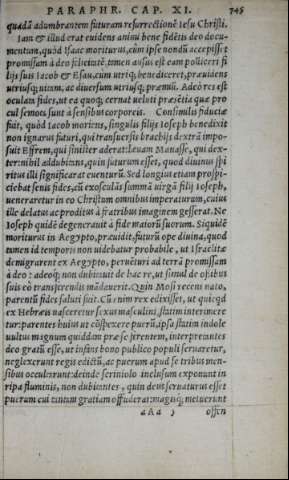 PARAPHR. CAP. XI. 745
quādā adumbrantem futuram resurrectionē Iesu Christi.
Iam & illud erat euidens animi bene fidētis deo docu-
mentum, quòd Isaac moriturus, cūm ipse nondū accepisset
promissam à deo felicitatē, tamen ausus est eam polliceri fi
lijs suis Iacob & Esau, cum utriq; benediceret, præuidens
utriusq; uitam, ac diuersum utriusq; præmiū. Adeò res est
oculam fides, ut ea quoq; cernat ueluti præsētia quæ pro
cul semota sunt à sensibus corporeis. Consimilis fiduciæ
fuit, quòd Iacob moriens, singulis filijs Ioseph benedixit
non ignarus futuri, qui transuersis brachijs dextrā impo-
suit Effrem, qui sinister aderat: læuam Manasse, qui dex-
ter: nihil addubitans, quin futurum esset, quod diuinus spi
ritus illi significarat euenturū. Sed longius etiam prospi-
ciebat senis fides, cū exosculās summā uirgā filij Ioseph,
ueneraretur in eo Christum omnibus imperaturum, cuius
ille delatus ac proditus à fratribus imaginem gesserat. Ne
Ioseph quidē degenerauit à fide maiorū suorum. Siquidē
moriturus in Aegypto, præuidit, futurū ope diuina, quod
tamen id temporis non uidebatur probabile, ut Israelitæ
demigrarent ex Aegypto, peruēturi ad terrā promissam
à deo: adeoq; non dubitauit de hac re, ut simul de ossibus
suis eò transferendis mādauerit. Quin Mosi recens nato,
parentū fides saluti fuit. Cū enim rex edixisset, ut quicqd
ex Hebræis nasceretur sexus masculini, statim interimere
tur: parentes huius ut cōspexere puerū, ipsa statim indole
uultus magnum quiddam præ se ferentem, interpretantes
deo gratū esse, ut infans bono publico populi seruaretur,
neglexerunt regis edictū, ac puerum apud se tribus men-
sibus occulerunt: deinde scriniolo inclusum exponunt in
ripa fluminis, non dubitantes, quin deus seruaturus esset
puerum cui tantum gratiam offuderat: magisq; metuerunt
aAa 5 offen